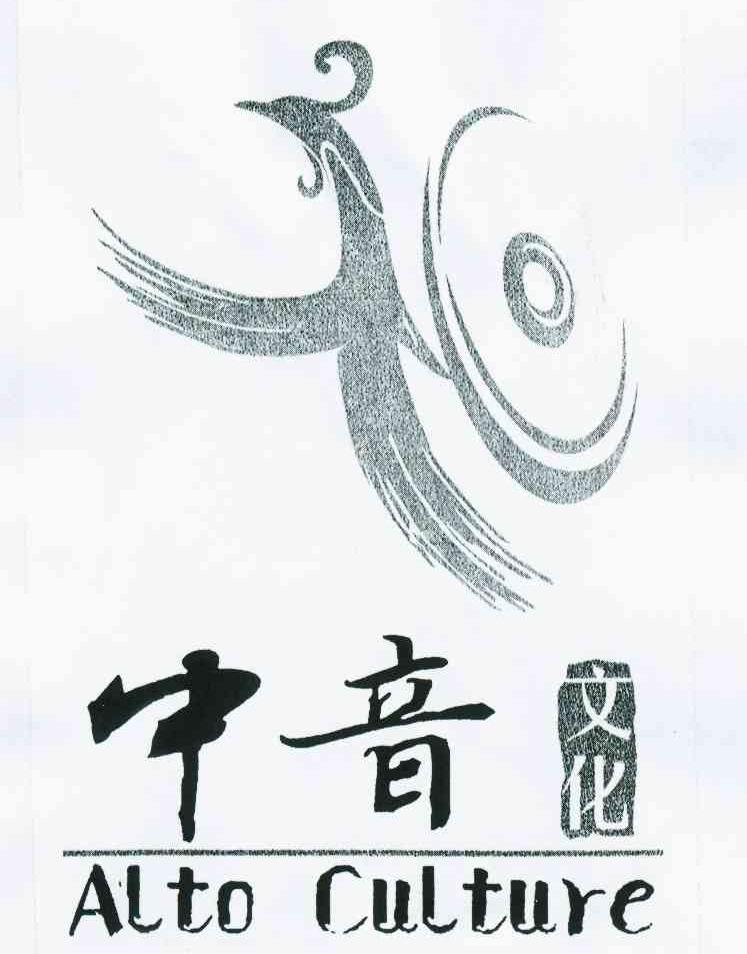 中音 文化
Alto Culture